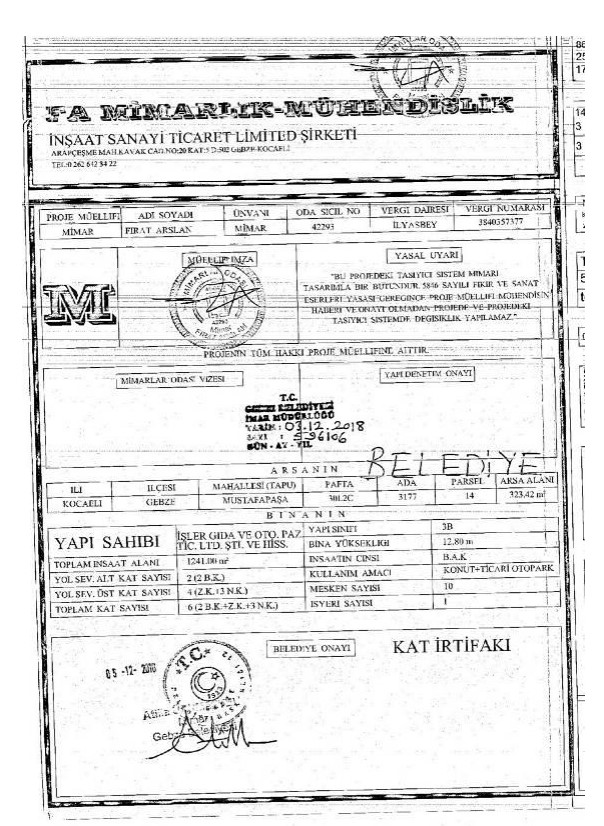 FA MİMARLIK-MÜHENDİSLİK
İNŞAAT SANAYİ TİCARET LİMİTED ŞİRKETİ
ARAPÇEŞME MAH.KAVAK CAD.NO:20 KAT:5 D:502 GEBZE-KOCAELİ
TEL:0 262 642 34 22
PROJE MÜELLIFI ADI SOYADI ÜNVANI ODA SICIL NO VERGI DAIRESI VERGI NUMARASI
MİMAR FIRAT ARSLAN MİMAR 42293 İLYASBEY 3840557377
MÜELLIF IMZA
YASAL UYARI
"BU PROJEDEKI TASIYICI SISTEM MIMARI
TASARIMLA BIR BUTUNDUR. 5846 SAYILI FIKIR VE SANAT
ESERLERI YASASI GEREGINCE PROJE MÜELLIFI MÜHENDISIN
HABERI VE ONAYI OLMADAN PROJEDE VE PROJEDEKI
TASIYICI SISTEMDE DEGISIKLIK YAPILAMAZ."
M
PROJENIN TÜM HAKKI PROJE MÜELLIFINE AITTIR.
MİMARLAR ODASI VIZESI
YAPI DENETIM ONAYI
T.C.
GEBZE BELEDİYESİ
İMAR MÜDÜRLÜĞÜ
TARİH : 03.12.2018
SAYI : 5-96106
GÜN - AY - YIL
BELEDİYE
ARSANIN
ILI ILCESI MAHALLESI (TAPU) PAFTA ADA PARSEL ARSA ALANI
KOCAELI GEBZE MUSTAFAPAŞA 30L2C 3177 14 323,42 m²
BINANIN
YAPI SAHIBI İŞLER GIDA VE OTO. PAZ. TİC. LTD. ŞTİ. VE HİSS.
YAPI SINIFI 3B
BINA YÜKSEKLIGI 12.80 m
TOPLAM INSAAT ALANI 1241.00 m² INSAATIN CINSI B.A.K
YOL SEV. ALT KAT SAYISI 2 (2 B.K.) KULLANIM AMACI KONUT+TİCARİ OTOPARK
YOL SEV. ÜST KAT SAYISI 4 (Z.K.+3 N.K.) MESKEN SAYISI 10
TOPLAM KAT SAYISI 6 (2 B.K.+Z.K.+3 N.K.) ISYERI SAYISI 1
BELEDIYE ONAYI
KAT İRTİFAKI
05 -12- 2018
T.C.